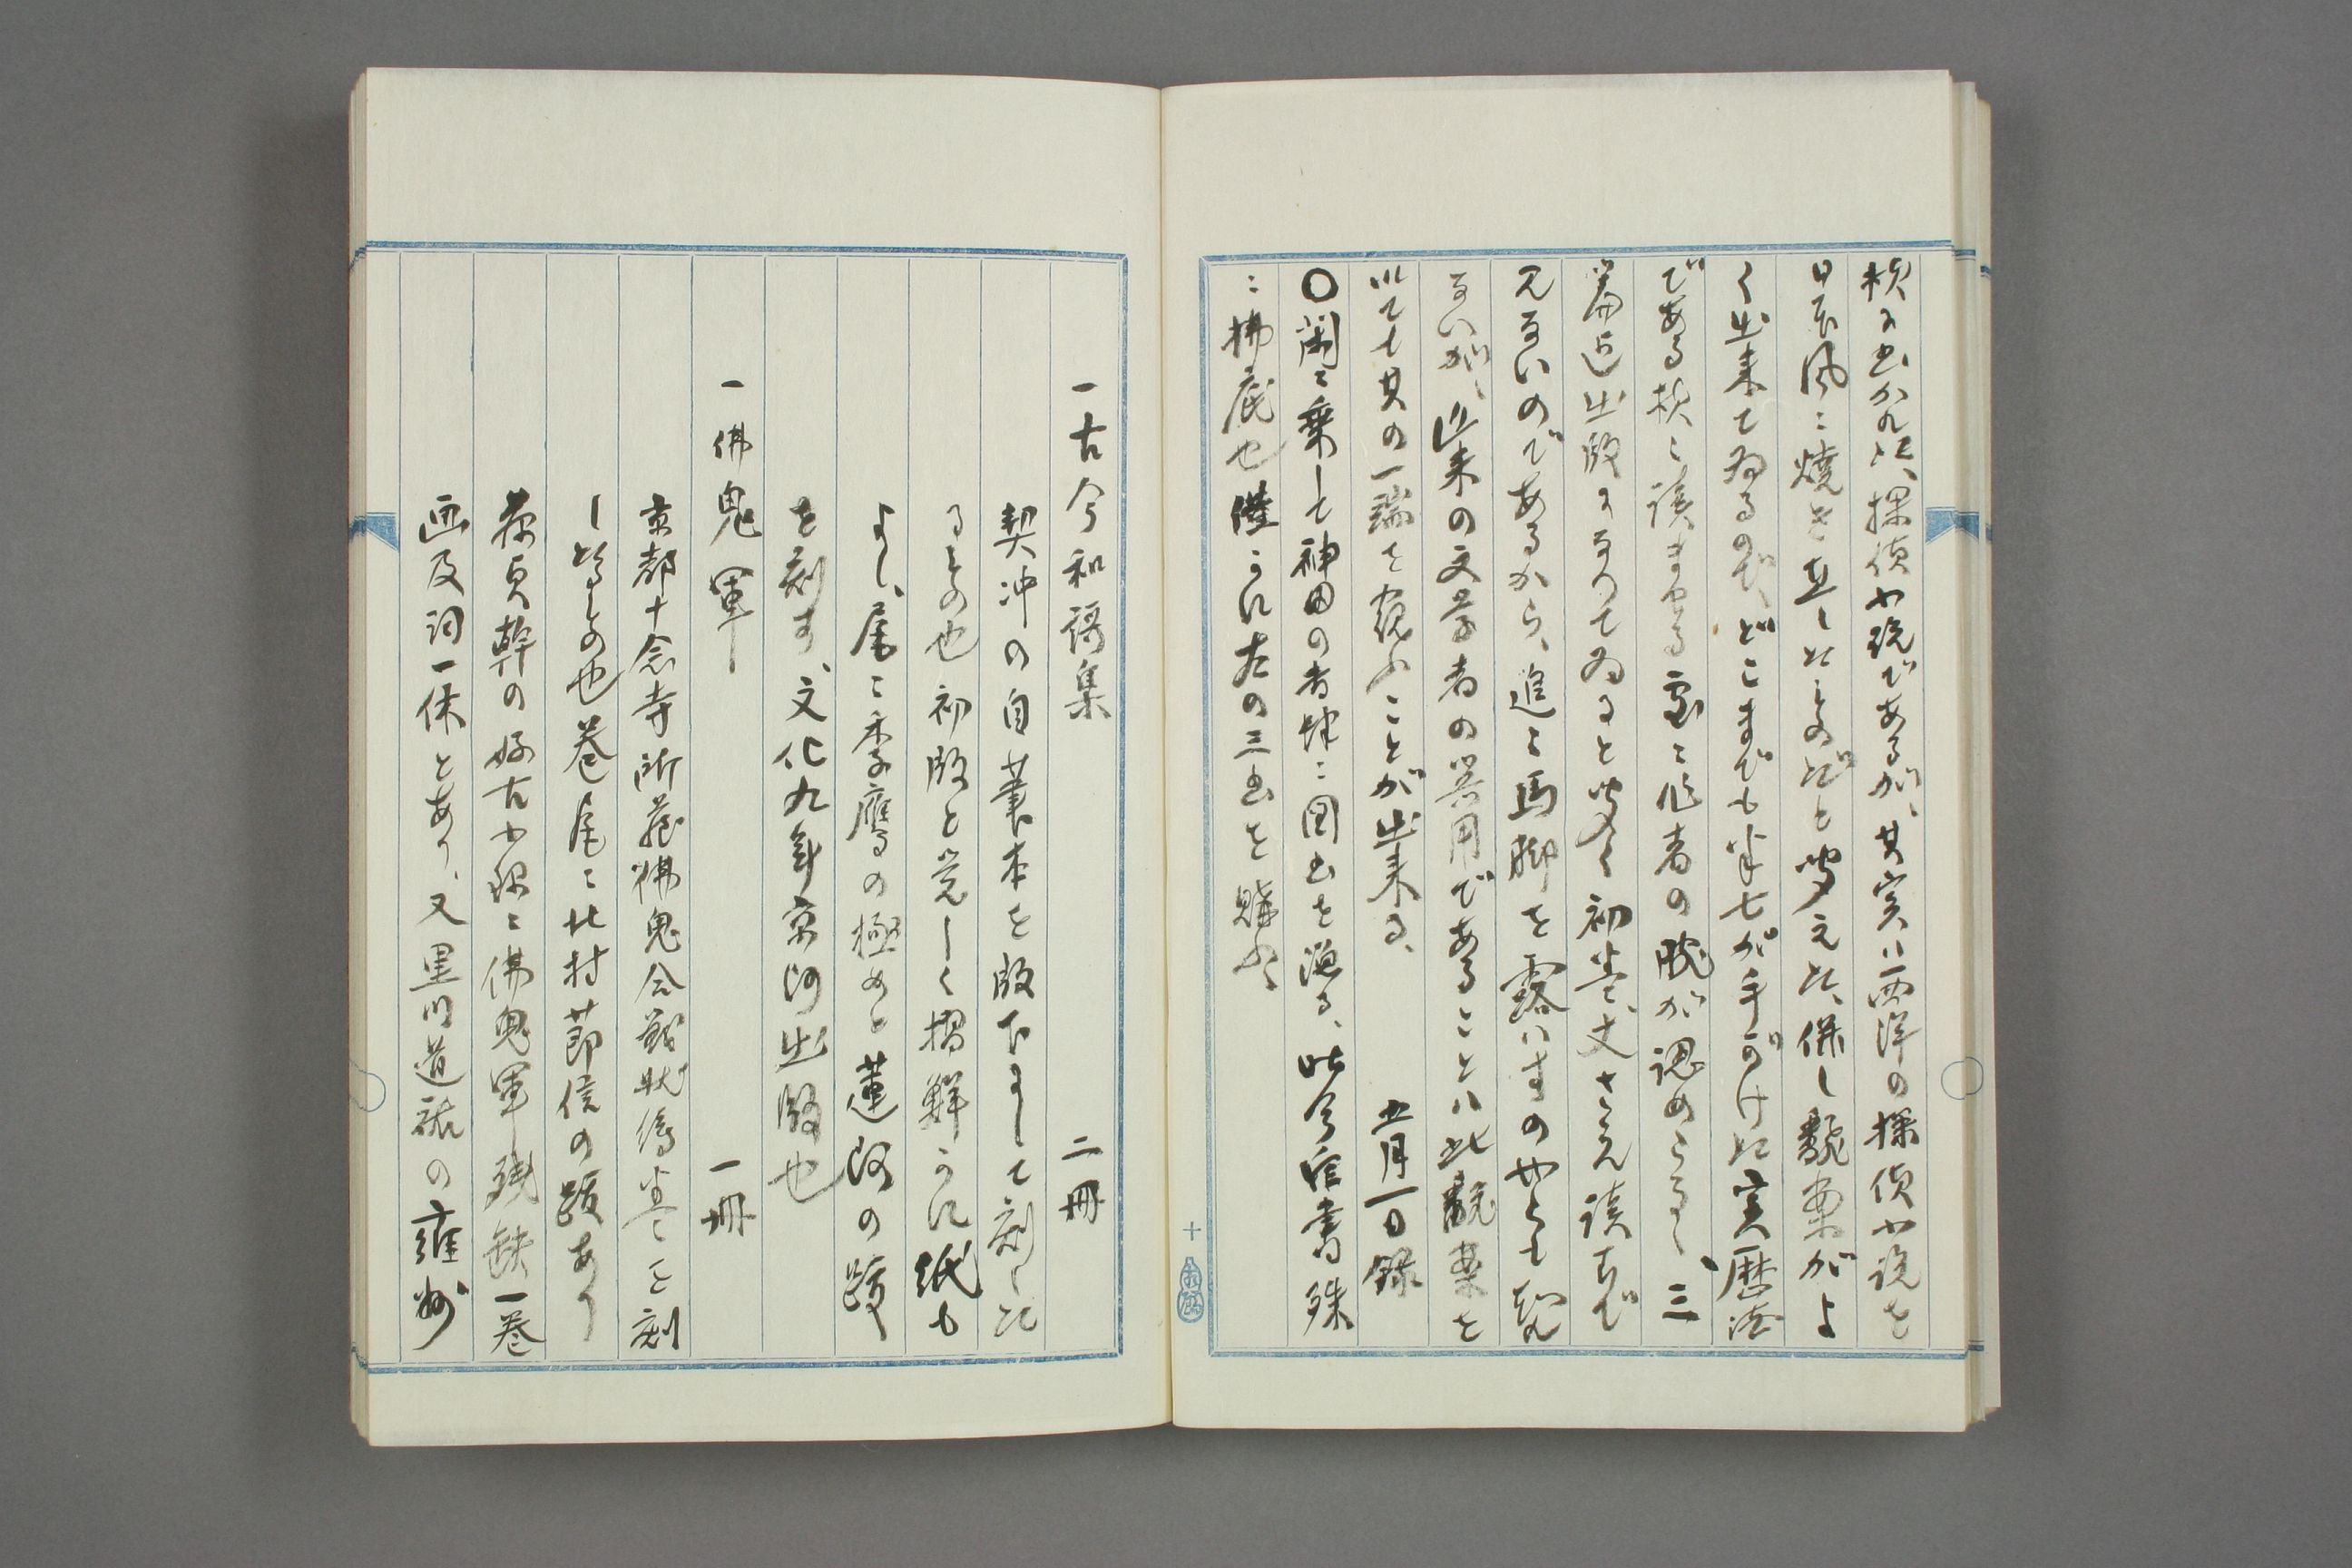 様に書かれた探偵小説であるが、其実ハ西洋の探偵小説を
日本風ニ焼き直したものだと聞えた、併し翻案がよ
く出来てゐるので、どこまでも半七が手がけた実歴談
である様ニ読まるゝ処ニ作者の腕が認めらるゝ、三
篇迄出版になつてゐると聞く初巻丈さへ読まで
見ないのであるから、進て馬脚を露ハすのやらも知れ
ないが、近来の文学者の器用であることハ此翻案を
以ても其の一端を窺ふことが出来る、
五月一日録
〇閑ニ乗して神田の書肆ニ図書を漁る、此名店書殊
ニ拂底也僅かに左の三書を購ふ、
一古今和謌集 二冊
契沖の自筆本を版下にして刻した
るもの也初版と覚しく摺鮮かに紙も
よし、尾ニ季鷹の極めと蓮阿の跋
を刻す、文化九年京師出版也
一佛鬼軍 一冊
京都十念寺所蔵佛鬼合戦状偽巻を刻
し出るもの也巻尾ニ北村節信の跋あり
藤貞幹の好古小録ニ佛鬼軍残缺一巻
画及詞一休とあり、又黒川道祐の雍州
十